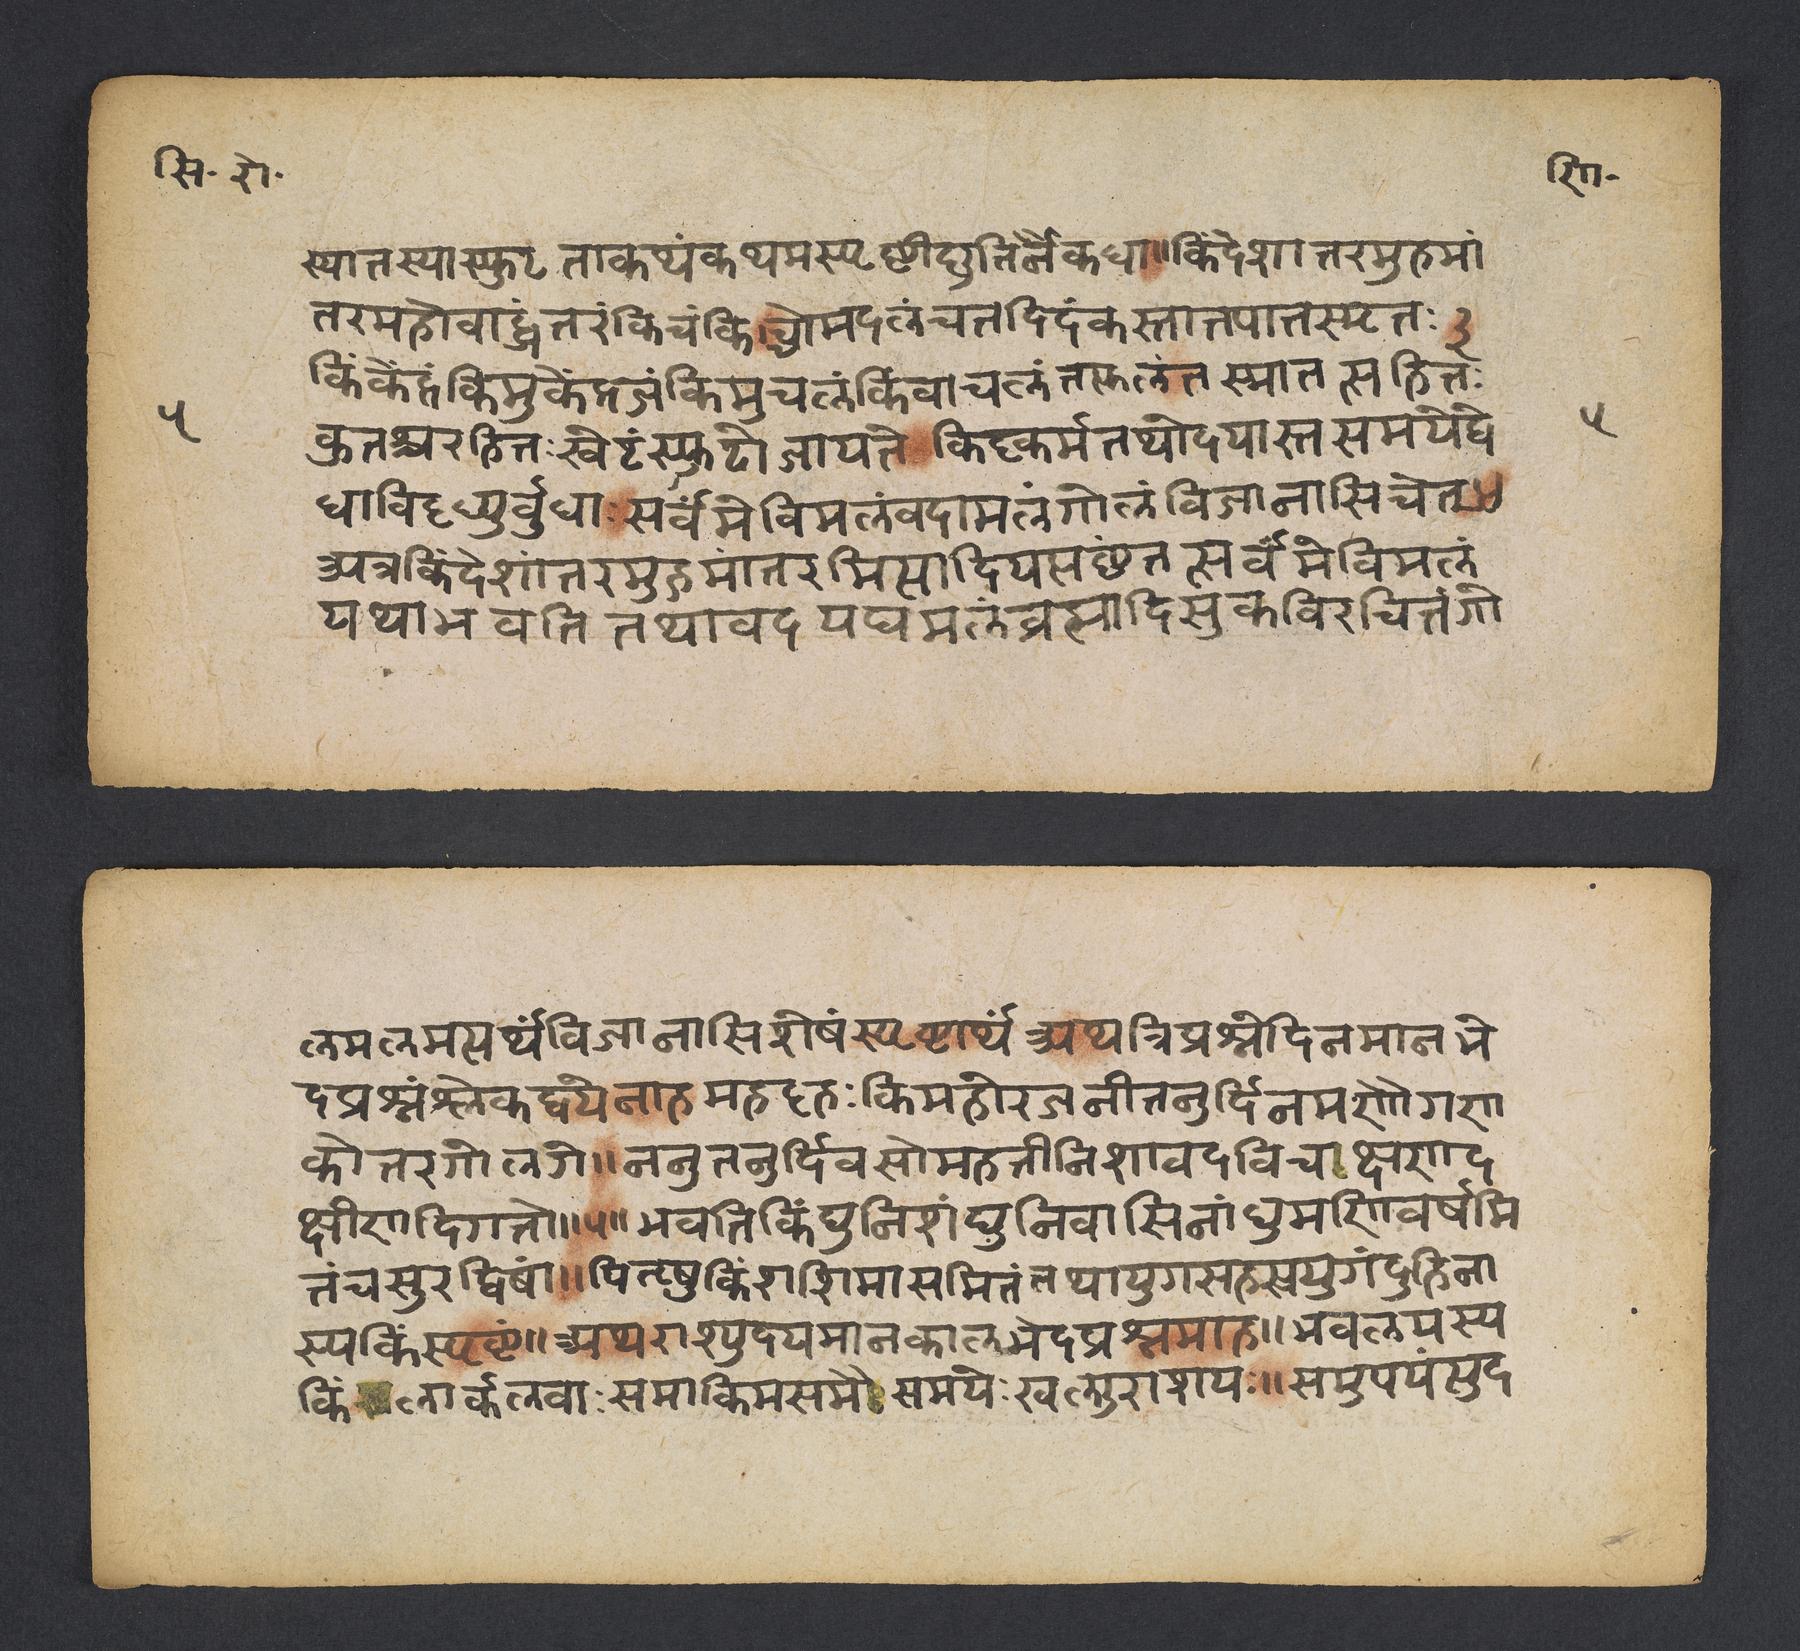 सि. शे.
णि.
स्यातस्यास्फुट ताकथंकथमस्पष्टीद्युतिर्नैकधा॥किंदेशान्तरमुद्गमां
तरमहोवाह्वंतरंकिंचकिंचोमदलंचतदिदंकस्तात्तपातस्फुटतः३
किंकेंद्रंकिमुकेंद्रजंकिमुचलंकिंवाचलंतत्फलंतस्मात् सहितः
कुतश्चरहितःखेटंस्फुटोजायते किंदृक्कर्मतथोदयास्तसमयेद्वे
५
५
धाविदध्युर्बुधाःसर्वंमेविमलंवदामलंगोलंविजानासिचेत्४
अत्रकिंदेशांतरमुद्गमांतरमित्यादियत्पृष्ठंतत्सर्वंमेविमलं
यथाभवतितथावदयद्यमलंब्रह्मादिसुकविरचितंगो
लमलमत्यर्थंविजानासिशेषंस्पष्टार्थं अथत्रिप्रश्नेदिनमानभे
दप्रश्नंश्लोकद्वयेनाहमहदहःकिमहोरजनीतनुर्दिनमणौगणा
कोत्तरगोलगे॥ननुतनुर्दिवसोमहतीनिशावदविचक्षणद
क्षीणदिगतो॥५॥भवतिकिंद्युनिशंद्युनिवासिनांधुमणिवर्षमि
तंचसुरद्विषां॥पितृषुकिंशशिमासमितंतथायुगसहस्रयुगंद्रुहिणा
स्यकिंस्पष्टं॥अथराश्युदयमानकालभेदप्रश्नमाह॥भवलयस्य
किं लार्कलवाःसमाकिमसमैःसमयैःखलुराशयः॥समुपयंसुद